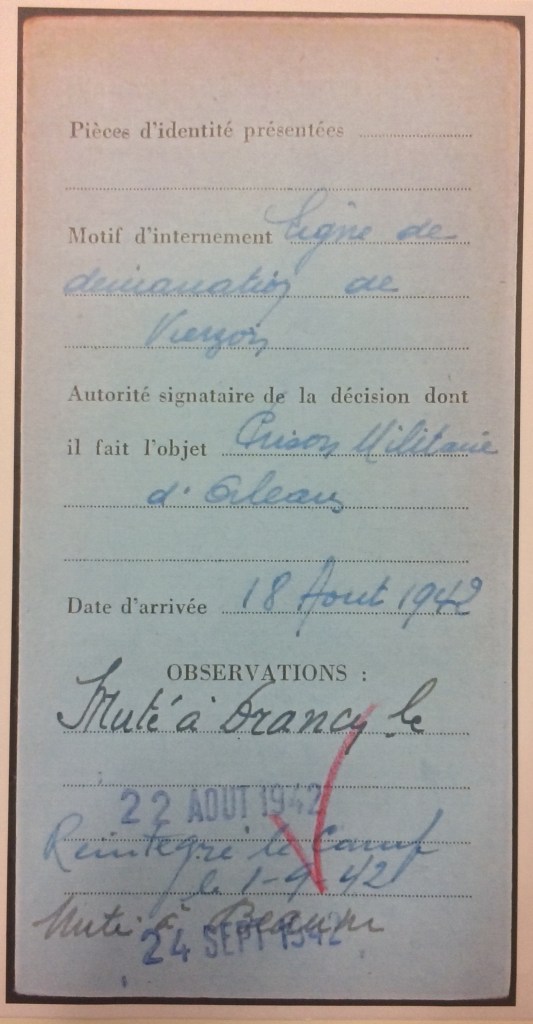 Pièces d'identité présentées
Motif d'internement Ligne de
demarcation de
Vierzon
Autorité signataire de la décision dont
il fait l'objet Prison Militaire
d'Orleans
Date d'arrivée 18 Aout 1942
OBSERVATIONS :
Muté à Drancy le
22 AOUT 1942
Réintégré le Camp
le 1-9-42
Muté à Beaune
24 SEPT 1942